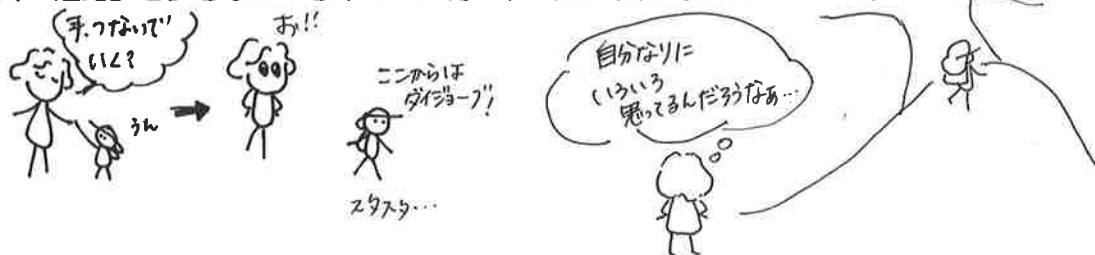 手、つないで
いく？
うん
お!!
ここからは
ダイジョーブ！
スタスタ…
自分なりに
いろいろ
思ってるんだろうなぁ…